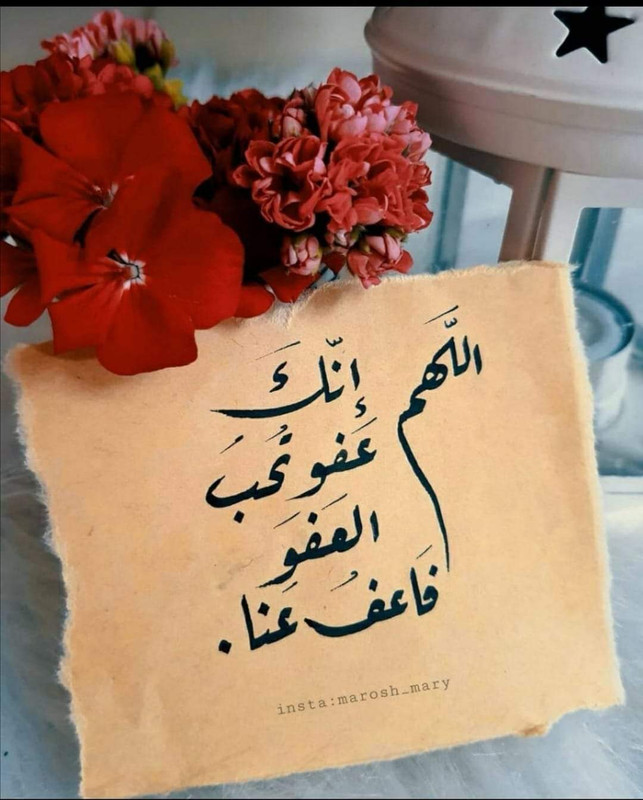 اللَّهم إنّكَ
عَفو تُحبُ
العَفوَ
فَاعفُ عَنا.
insta:marosh_mary